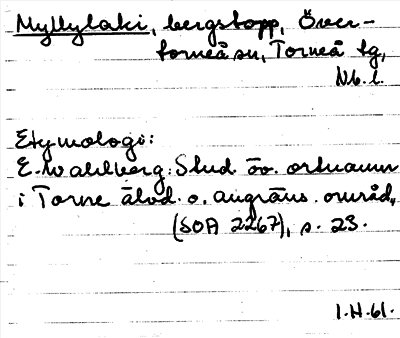 Myllylaki, bergstopp, Över-
torneå sn, Torneå tg,
Nb. l.
Etymologi:
E. Wahlberg: Stud. öv. ortnamn
i Torne älvd. o. angräns. område,
(SOA 2267), s. 23.
I.H.61.